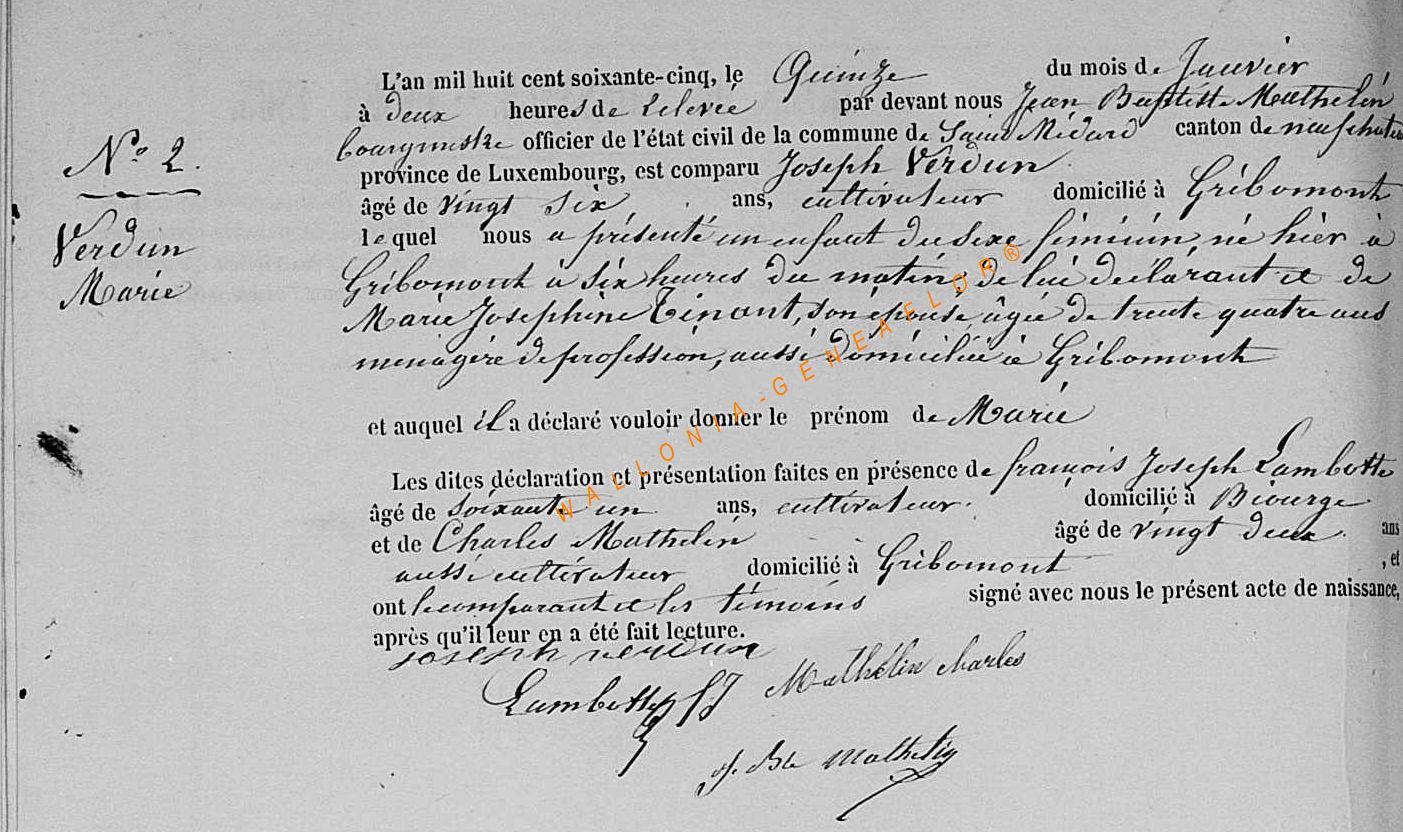 L'an mil huit cent soixante-cinq, le Quinze du mois de Janvier
à deux heures de relevée par devant nous Jean Baptiste Mathelin
bourgmestre officier de l'état civil de la commune de Saint Médard canton de neufchateau
province de Luxembourg, est comparu Joseph Verdun
âgé de vingt six, ans, cultivateur domicilié à Gribomont
lequel nous a présenté un enfant du sexe féminin, né hier à
Gribomont à six heures du matin, de lui déclarant et de
Marie Josephine Tinant, son épouse, âgée de trente quatre ans
ménagère de profession, aussi domiciliée à Gribomont
et auquel il a déclaré vouloir donner le prénom de Marie
Les dites déclaration et présentation faites en présence de françois Joseph Lambotte
âgé de soixante un ans, cultivateur. domicilié à Biourge
et de Charles Mathelin âgé de vingt deux. ans
aussi cultivateur domicilié à Gribomont, et
ont le comparant et les témoins signé avec nous le présent acte de naissance,
après qu'il leur en a été fait lecture.
N° 2.
Verdun
Marie
joseph verdun
Lambotte f J
Mathelin charles
J. Bte Mathelin
WALLONIA-GENEAFLOR®